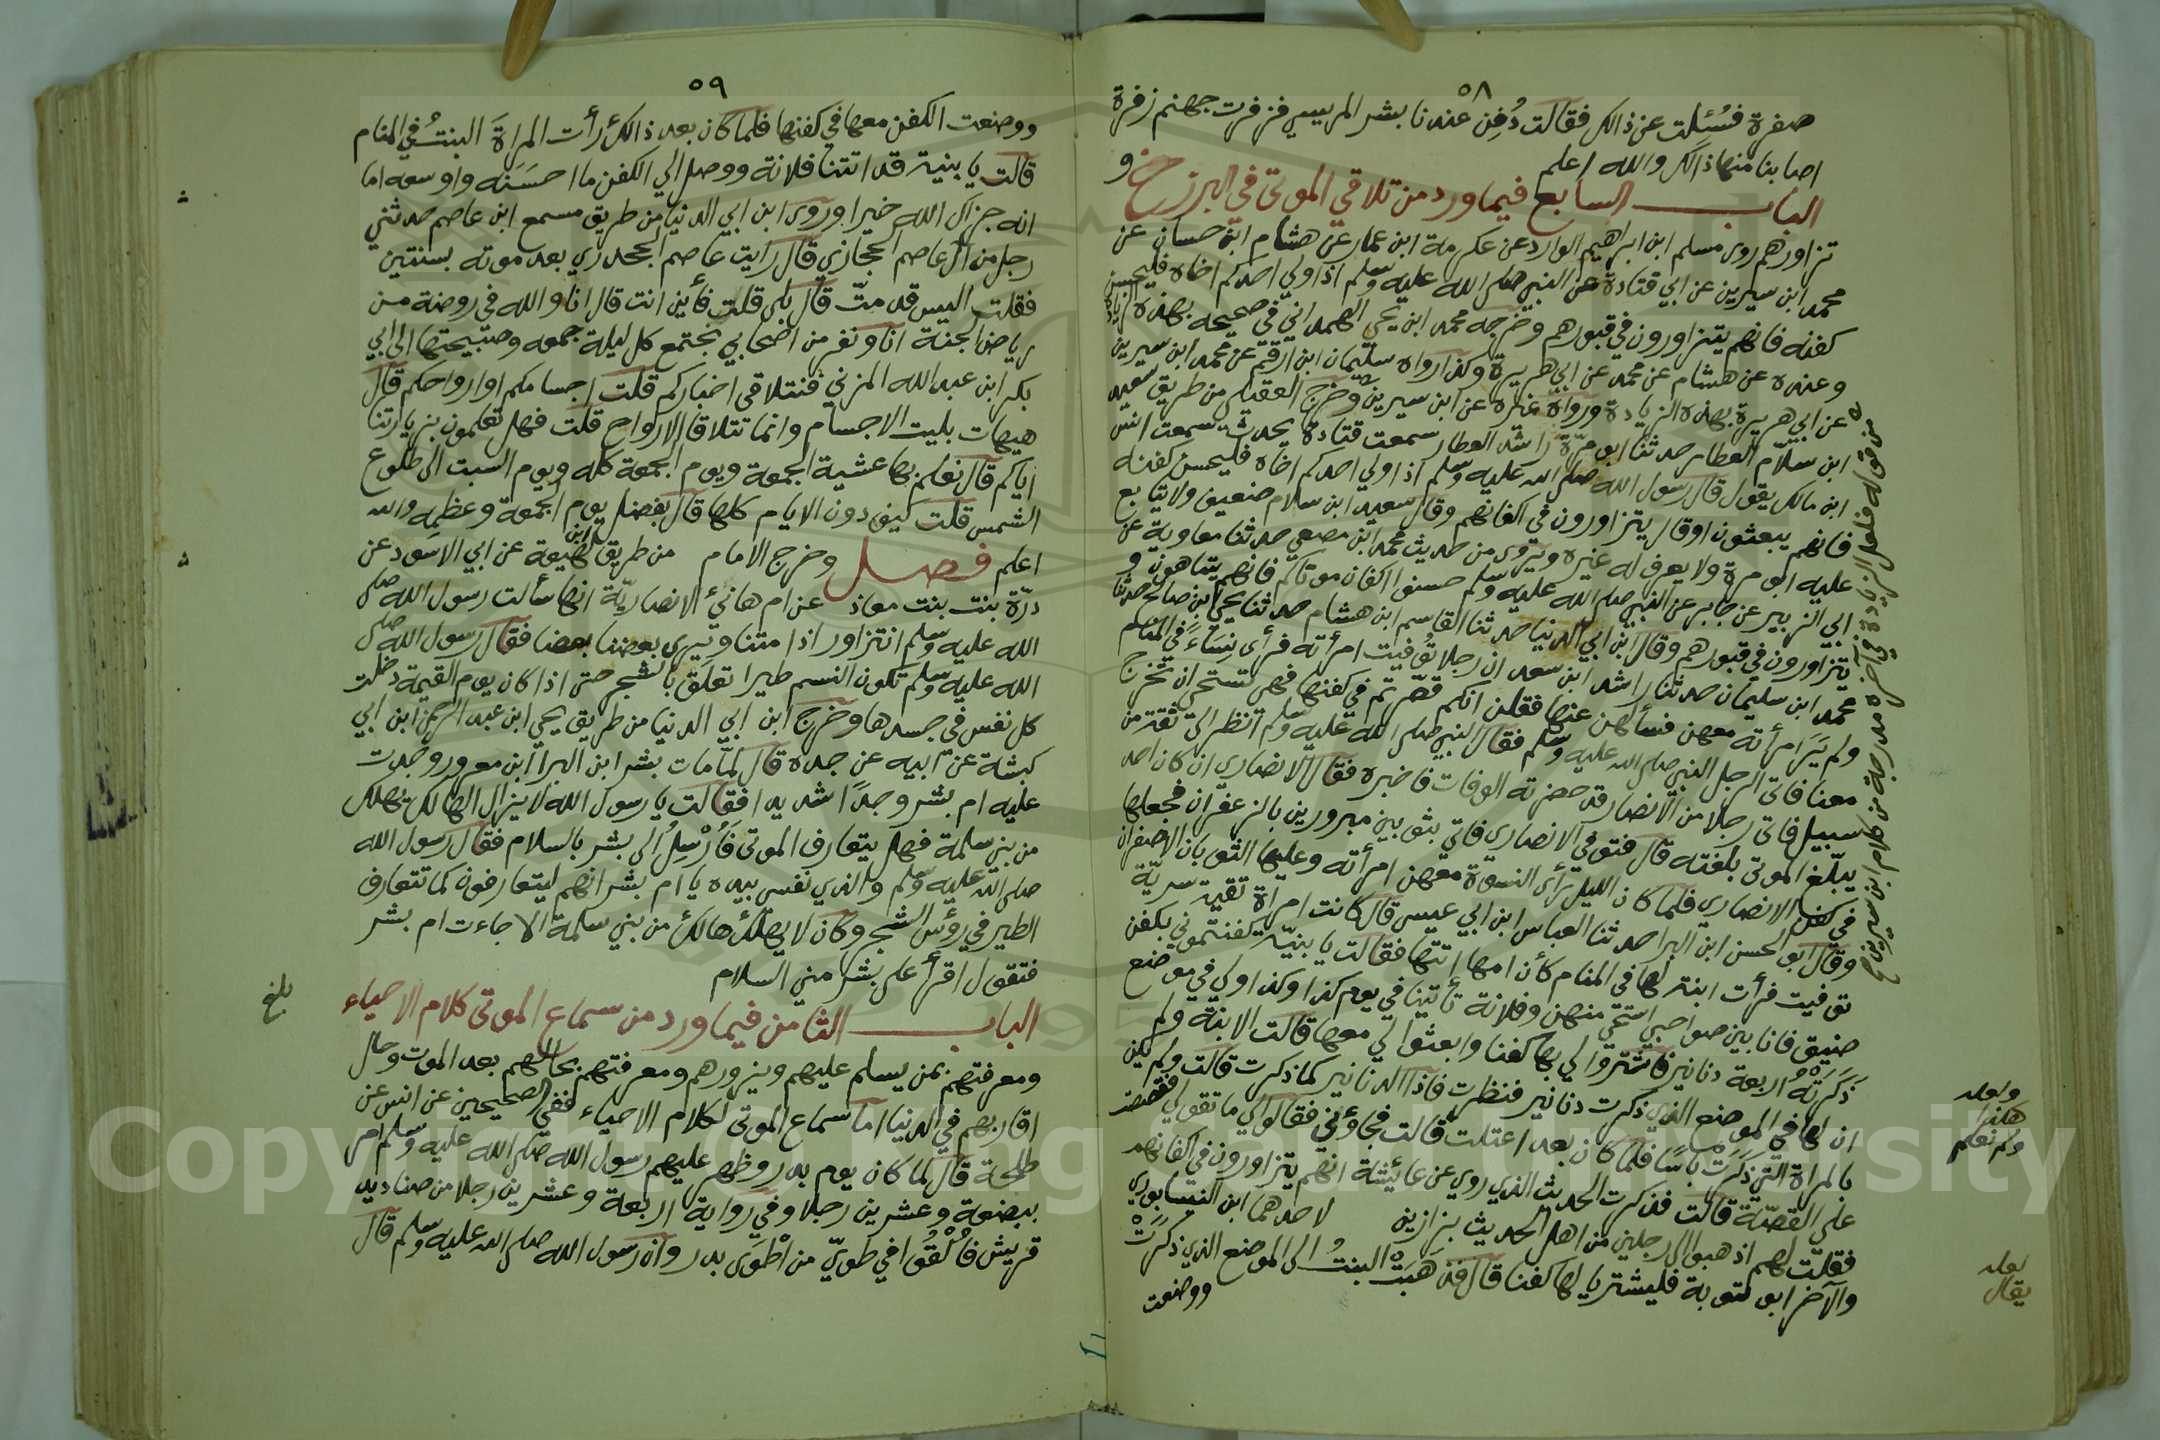 ٥٨
صفرة فسُئلت عن ذالك فقالت دُفِن عندنا بشر المريسي فزفرت جهنم زفرة
اصابنا منها ذالك والله اعلم
الباب السابع فيما ورد من تلاقي الموتى في البرزخ و
تزاورهم روى مسلم ابن ابراهيم الوارد عن عكرمة ابن عمار عن هشام ابن حسان عن
محمد ابن سيرين عن ابي قتادة عن النبي صلى الله عليه وسلم اذا ولي احدكم اخاه فليحسن
كفنه فانهم يتزاورون في قبورهم وخرجه محمد ابن يحي الهمداني في صحيحه بهذه الزيادة
وعنده عن هشام عن محمد عن ابي هريرة وكذا رواه سليمان ابن ارقم عن محمد ابن سيرين
عن ابي هريرة بهذه الزيادة ورواه غيره عن ابن سيرين وخرج العقيلي من طريق سعيد
ابن سلام العطار حدثنا ابو مرّة راشد العطار سمعت قتادة يحدث سمعت انس
ابن مالك يقول قال رسول الله صلى الله عليه وسلم اذا ولي احدكم اخاه فليحسن كفنه
فانهم يبعثون او قال يتزاورون في اكفانهم وقال سعيد ابن سلام ضعيف ولا يتابع
عليه ابو مرة ولا يعرف له غيره ويروى من حديث محمد ابن مصعي حدثنا معاوية عن
ابي الزبير عن جابر عن النبي صلى الله عليه وسلم حسنوا اكفان موتاكم فانهم يتباهون و
يتزاورون في قبورهم وقال ابن ابي الدنيا حدثنا القاسم ابن هشام حدثنا يحي ابن صالح حدثنا
محمد ابن سليمان حدثنا راشد ابن سعد ان رجلا توفيت امرأته فرأى نِسَاءً في المنام
ولم يَرَ امرأته معهن فسألهن عنها فقلن انكم قصّرتم في كفنها فهي تستحي ان تخرج
معنا فاتى الرجل النبي صلى الله عليه وسلم فقال النبي صلى الله عليه وسلم انظر الى ثقة من
سبيل فاتى رجلا من الانصار قد حضرته الوفات فاخبره فقال الانصاري ان كان احد
يبلّغ الموتى بلغته قال فتوفي الانصاري فاتي بثوبين مبرورين بالزعفران فجعلها
في كفن الانصاري فلما كان الليل رأى النسوة معهن امرأته وعليها الثوبان الاصفران
وقال ابو الحسن ابن البرا حدثنا العباس ابن ابي عيسى قال كانت امراة تقية سريّة
توفيت فرأت ابنة لها في المنام كأن امها اتتها فقالت يا بنيّة كفنتموني بكفن
ضيق فانا بين صواحبي استحي منهن وفلانة تأتينا في يوم كذا وكذا ولي في موضع
ذَكَرَتْهُ اربعة دنانير فاشتروا لي بها كفنا وابعثوا لي معها قالت الابنة ولم
ان لها في الموضع الذي ذكرت دنانير فنظرت فاذا الدنانير كما ذكرت قالت ولم يكن
بالمراة التي ذَكَرَتْ بأسًا فلما كان بعد اعتلت قالت فجاؤني فقالوا لي ما تقولي فقصصت
علي القصّة قالت فذكرت الحديث الذي روي عن عائشة انهم يتزاورون في اكفانهم
فقلت لهم اذهبوا الى رجلين من اهل الحديث بزازين لاحدهما ابن النيسابوري
والآخر ابو توبة فليشتريا لها كفنا قال فذهَبَتْ البنتُ الى الموضع الذي ذكَرَتْ
ووضعت
من قوله فلعل الزيادة في آخره مدرجة من كلام ابن سيرين
ولعله
هكذا
ولم نعلم
لعله
يقال
٥٩
ووضعت الكفن معها في كفنها فلما كان بعد ذالك رأت المراةَ البنتُ في المنام
قالت يا بنية قد اتتنا فلانة ووصل الي الكفن ما احسَنه واوسعه اما
انه جزاك الله خيرا وروى ابن ابي الدنيا من طريق مسمع ابن عاصم حدثني
رجل من آل عاصم الحجازي قال رايت عاصم الجحدري بعد موته بسنتين
فقلت اليس قد متّ قال بلى قلت فأين انت قال انا والله في روضة من
رياض الجنة انا ونفر من اصحابي نجتمع كل ليلة جمعه وصبيحتها الى ابي
بكر ابن عبد الله المزني فنتلاقى اخباركم قلت اجسامكم او ارواحكم قال
هيهات بليت الاجسام وانما تتلاقا الارواح قلت فهل تعلمون بزيارتنا
اياكم قال نعلم بها عشية الجمعة ويوم الجمعة كله ويوم السبت الى طلوع
الشمس قلت كيف دون الايام كلها قال بفضل يوم الجمعة وعظمه والله
اعلم فصل وخرج الامام من طريق ابن لهيعة عن ابي الاسود عن
درّة بنت بنت معاذ عن ام هانئ الانصاريّة انها سألت رسول الله صلى
الله عليه وسلم انتزاور اذا متنا ويرى بعضنا بعضا فقال رسول الله صلى
الله عليه وسلم تكون النسم طيرا تعلَق بالشجر حتى اذا كان يوم القيمة دخلت
كل نفس في جسدها وخرج ابن ابي الدنيا من طريق يحي ابن عبد الرحمن ابن ابي
كبشة عن ابيه عن جده قال لمّا مات بشر ابن البرا ابن معرور وجدت
عليه ام بشر وجدًا شديدا فقالت يا رسول الله لا يزال الهالك يهلك
من بني سلمة فهل يتعارف الموتى فَأُرْسِلُ الى بشر بالسلام فقال رسول الله
صلى الله عليه وسلم والذي نفسي بيده يا ام بشر انهم ليتعارفون كما تتعارف
الطير في رؤس الشجر وكان لا يهلك هالك من بني سلمة الا جاءت ام بشر
فتقول اقرأ على بشر مني السلام
الباب الثامن فيما ورد من سماع الموتى كلام الاحياء
ومعرفتهم بمن يسلم عليهم ويزورهم ومعرفتهم بحالهم بعد الموت وحال
اقاربهم في الدنيا اما سماع الموتى لكلام الاحياء ففي الصحيحين عن انس عن
طلحة قال لما كان يوم بدر وظهر عليهم رسول الله صلى الله عليه وسلم امر
ببضعة وعشرين رجلا وفي رواية اربعة وعشرين رجلا من صناديد
قريش فأُلْقُوا في طويّ من اطوَى بدر وان رسول الله صلى الله عليه وسلم قال
بلغ
Copyright © King Saud University